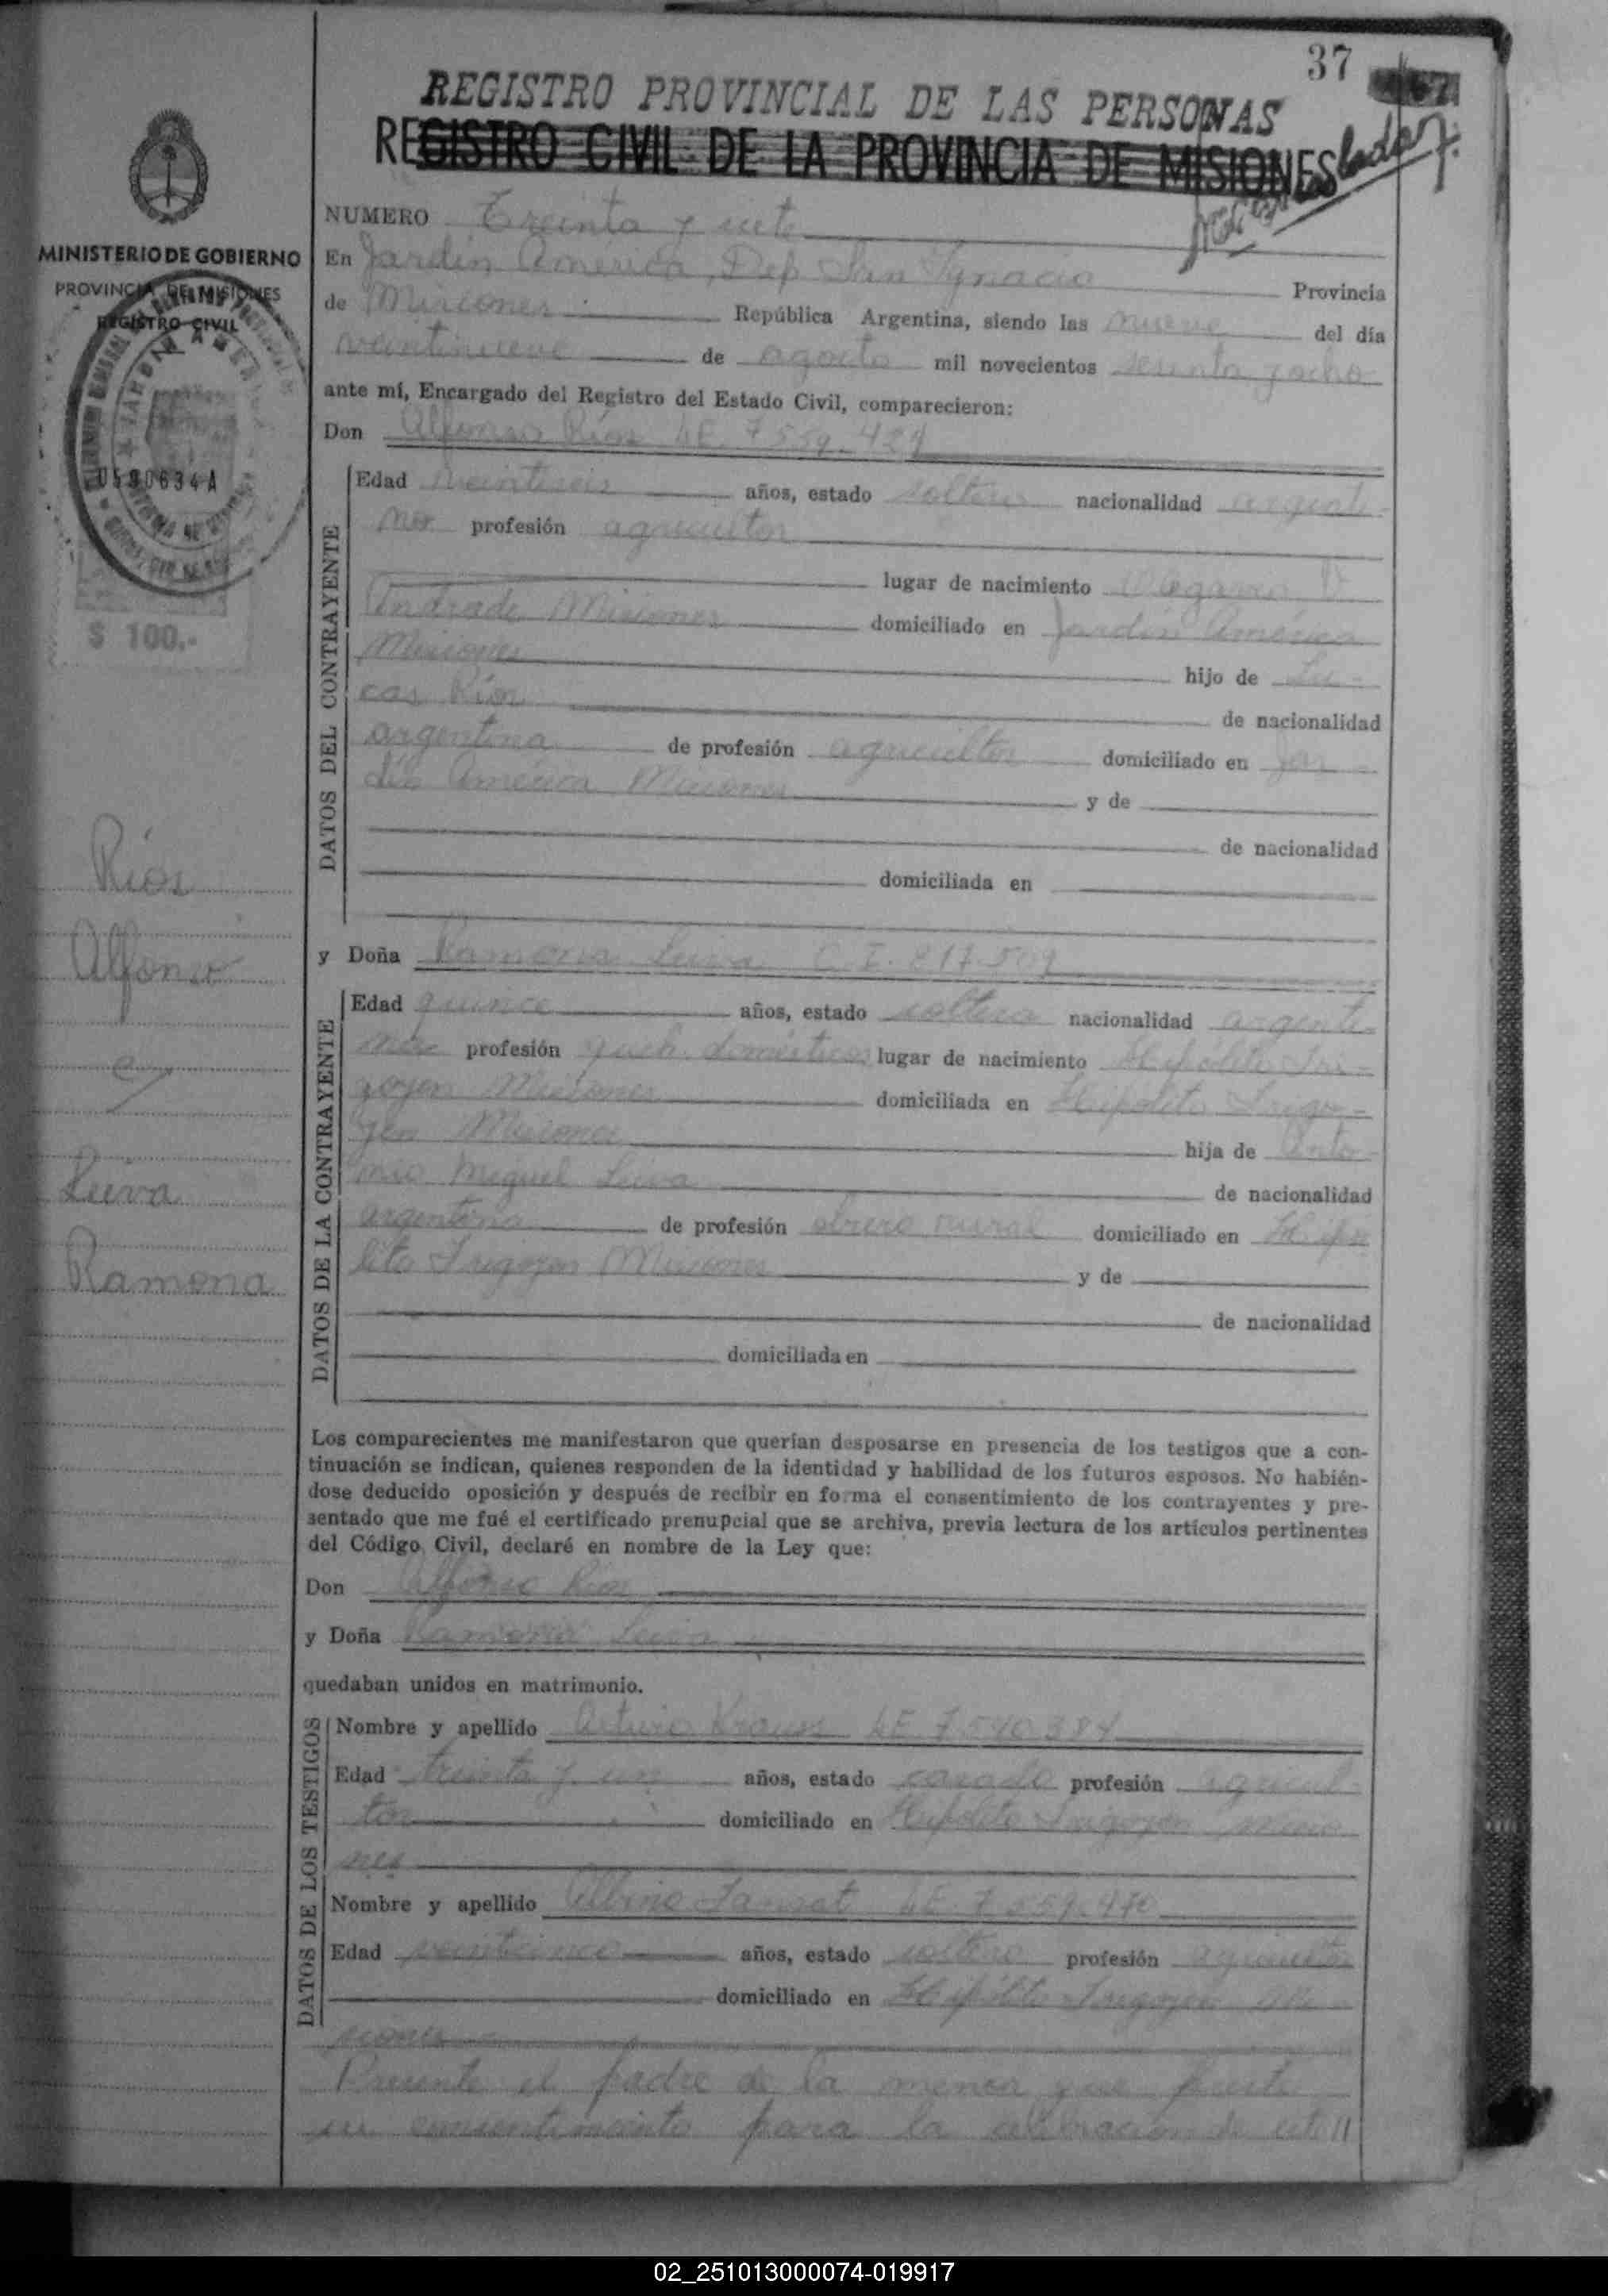 37
REGISTRO PROVINCIAL DE LAS PERSONAS
REGISTRO CIVIL DE LA PROVINCIA DE MISIONES
MINISTERIO DE GOBIERNO
PROVINCIA DE MISIONES
REGISTRO CIVIL
$ 100.-
Ríos
Alfonso
c/
Leiva
Ramona
NUMERO Treinta y siete
En Jardín America, Dep San Ygnacio Provincia
de Misiones República Argentina, siendo las nueve del día
veintinueve de agosto mil novecientos sesenta y ocho
ante mí, Encargado del Registro del Estado Civil, comparecieron:
Don Alfonso Ríos LE 7 559.424
DATOS DEL CONTRAYENTE
Edad veintiseis años, estado soltero nacionalidad argenti-
no profesión agricultor
lugar de nacimiento Olegario V.
Andrade Misiones domiciliado en Jardín América
Misiones hijo de Lu-
cas Ríos de nacionalidad
argentina de profesión agricultor domiciliado en Jar-
dín América Misiones y de
de nacionalidad
domiciliada en
y Doña Ramona Leiva C.I. 217.509
DATOS DE LA CONTRAYENTE
Edad quince años, estado soltera nacionalidad argenti-
na profesión queh. domésticos lugar de nacimiento Hipolito Iri-
goyen Misiones domiciliada en Hipólito Irigo-
yen Misiones hija de Anto-
nio Miguel Leiva de nacionalidad
argentina de profesión obrero rural domiciliado en Hipo
lito Irigoyen Misiones y de
de nacionalidad
domiciliada en
Los comparecientes me manifestaron que querían desposarse en presencia de los testigos que a con-
tinuación se indican, quienes responden de la identidad y habilidad de los futuros esposos. No habién-
dose deducido oposición y después de recibir en forma el consentimiento de los contrayentes y pre-
sentado que me fué el certificado prenupcial que se archiva, previa lectura de los artículos pertinentes
del Código Civil, declaré en nombre de la Ley que:
Don Alfonso Ríos
y Doña Ramona Leiva
quedaban unidos en matrimonio.
DATOS DE LOS TESTIGOS
Nombre y apellido Arturo Krauss LE 7.540.384
Edad treinta y un años, estado casado profesión agricul-
tor domiciliado en Hipólito Irigoyen Misio
nes
Nombre y apellido Albino LE 7.559.470
Edad veinticinco años, estado soltero profesión agricultor
domiciliado en Hipólito Irigoyen Mi-
siones
Presente el padre de la menor que presta
su consentimiento para la celebración de este //
02_251013000074-019917